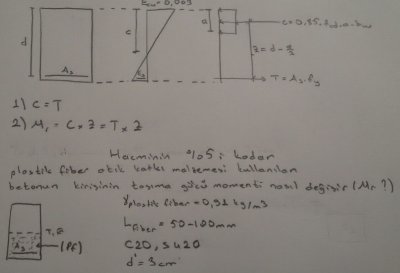 εcu = 0,003
C = 0,85.fcd.a.bw
d
c
a
z = d - a/2
As
εs
T = As.fy
1) C = T
2) Mr = C x Z = T x Z
Hacminin %5'i kadar
plastik fiber atık katkı malzemesi kullanılan
betonun kirişinin taşıma gücü momenti nasıl değişir (Mr?)
γplastik fiber = 0,91 kg/m3
(PF)
As
Lfiber = 50-100mm
C20, S420
d' = 3cm